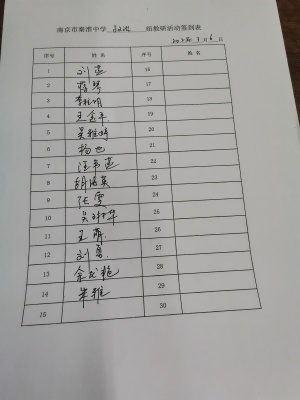 南京市秦淮中学 政治 组教研活动签到表
序号 姓名 序号 姓名
1 刘莲 16
2 蒋琴 17
3 18
4 王金平 19
5 吴雅婷 20
6 杨也 21
7 汪书莲 22
8 胡海英 23
9 张雯 24
10 吴琳华 25
11 王萌 26
12 刘勇 27
13 余龙艳 28
14 朱雅 29
15 30